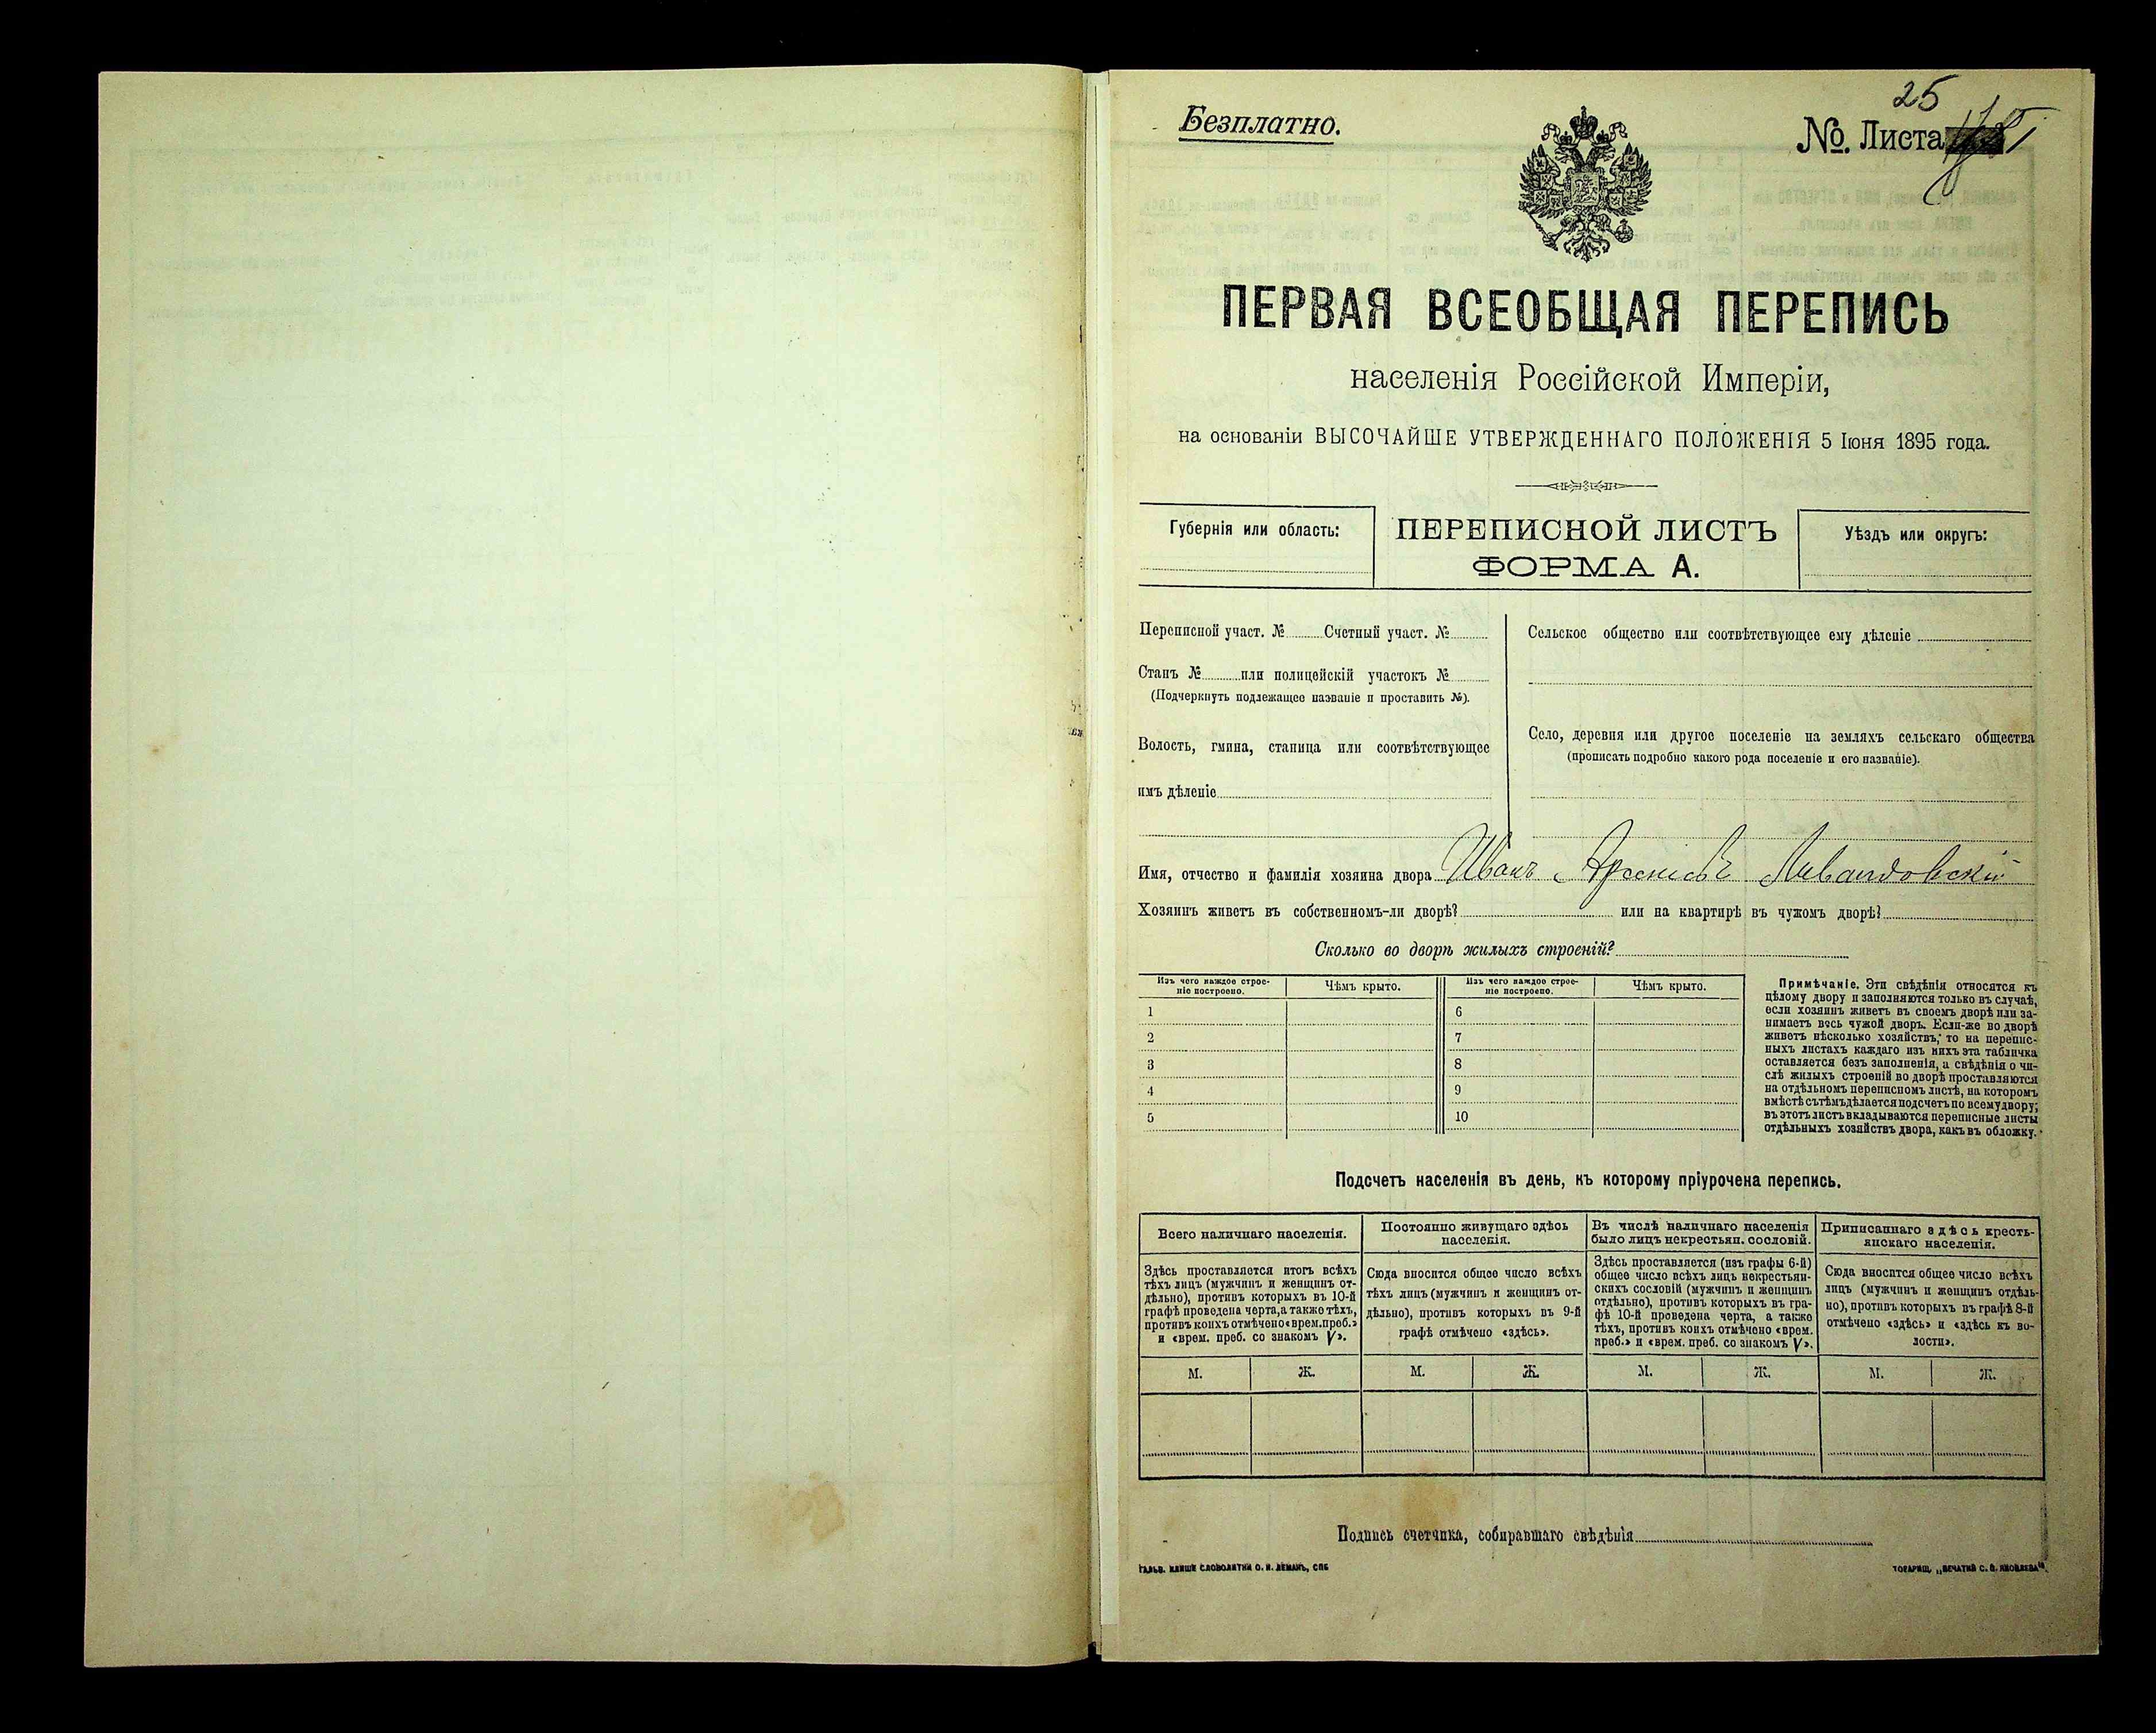 Безплатно.
25
№. Листа
ПЕРВАЯ ВСЕОБЩАЯ ПЕРЕПИСЬ
населенія Россійской Имперіи,
на основаніи ВЫСОЧАЙШЕ УТВЕРЖДЕННАГО ПОЛОЖЕНІЯ 5 Іюня 1895 года.
Губернія или область:
ПЕРЕПИСНОЙ ЛИСТЪ
ФОРМА А.
Уѣздъ или округъ:
Переписной участ. № Счетный участ. №
Станъ № или полицейскій участокъ №
(Подчеркнуть подлежащее названіе и проставить №).
Волость, гмина, станица или соотвѣтствующее
имъ дѣленіе
Сельское общество или соотвѣтствующее ему дѣленіе
Село, деревня или другое поселеніе на земляхъ сельскаго общества
(прописать подробно какого рода поселеніе и его названіе).
Имя, отчество и фамилія хозяина двора Иванъ Арсеніевъ Ливандовскій
Хозяинъ живетъ въ собственномъ-ли дворѣ? или на квартирѣ въ чужомъ дворѣ?
Сколько во дворѣ жилыхъ строеній?
Изъ чего каждое строе-
ніе построено.
Чѣмъ крыто.
Изъ чего каждое строе-
ніе построено.
Чѣмъ крыто.
1 6
2 7
3 8
4 9
5 10
Примѣчаніе. Эти свѣдѣнія относятся къ
цѣлому двору и заполняются только въ случаѣ,
если хозяинъ живетъ въ своемъ дворѣ или за-
нимаетъ весь чужой дворъ. Если-же во дворѣ
живетъ нѣсколько хозяйствъ, то на перепис-
ныхъ листахъ каждаго изъ нихъ эта табличка
оставляется безъ заполненія, а свѣдѣнія о чи-
слѣ жилыхъ строеній во дворѣ проставляются
на отдѣльномъ переписномъ листѣ, на которомъ
вмѣстѣ съ тѣмъ дѣлается подсчетъ по всему двору;
въ этотъ листъ вкладываются переписные листы
отдѣльныхъ хозяйствъ двора, какъ въ обложку.
Подсчетъ населенія въ день, къ которому пріурочена перепись.
Всего наличнаго населенія.
Здѣсь проставляется итогъ всѣхъ
тѣхъ лицъ (мужчинъ и женщинъ от-
дѣльно), противъ которыхъ въ 10-й
графѣ проведена черта, а также тѣхъ,
противъ коихъ отмѣчено «врем. преб.»
и «врем. преб. со знакомъ V».
Постоянно живущаго здѣсь
населенія.
Сюда вносится общее число всѣхъ
тѣхъ лицъ (мужчинъ и женщинъ от-
дѣльно), противъ которыхъ въ 9-й
графѣ отмѣчено «здѣсь».
Въ числѣ наличнаго населенія
было лицъ некрестьян. сословій.
Здѣсь проставляется (изъ графы 6-й)
общее число всѣхъ лицъ некрестьян-
скихъ сословій (мужчинъ и женщинъ
отдѣльно), противъ которыхъ въ гра-
фѣ 10-й проведена черта, а также
тѣхъ, противъ коихъ отмѣчено «врем.
преб.» и «врем. преб. со знакомъ V».
Приписаннаго здѣсь кресть-
янскаго населенія.
Сюда вносится общее число всѣхъ
лицъ (мужчинъ и женщинъ отдѣль-
но), противъ которыхъ въ графѣ 8-й
отмѣчено «здѣсь» и «здѣсь къ во-
лости».
М. Ж. М. Ж. М. Ж. М. Ж.
Подпись счетчика, собиравшаго свѣдѣнія
ГАЛЬВ. КЛИШЕ СЛОВОЛИТНИ О. И. ЛЕМАНЪ, СПБ
ТОВАРИЩ. „ПЕЧАТНЯ С. П. ЯКОВЛЕВА“.